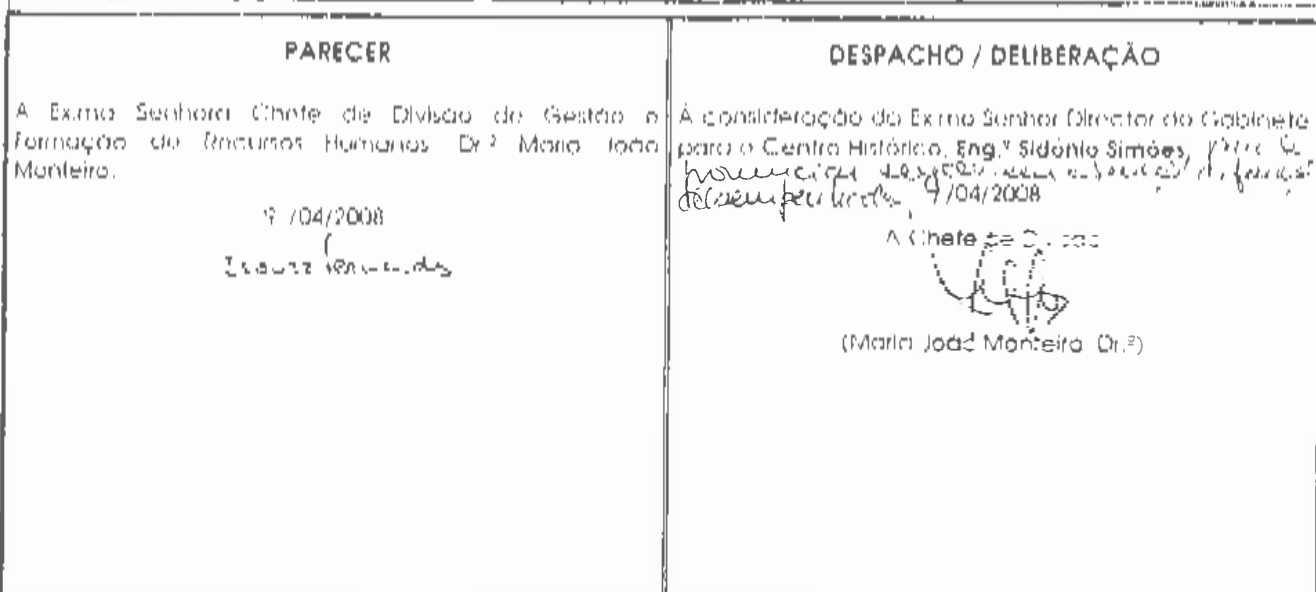 PARECER
A Exma Senhora Chefe de Divisão de Gestão e
Formação de Recursos Humanos Dr.ª Maria João
Monteiro.
9 /04/2008
DESPACHO / DELIBERAÇÃO
À consideração do Exmo Senhor Director do Gabinete
para o Centro Histórico, Eng.º Sidónio Simões,
9/04/2008
A Chefe de Divisão
(Maria João Monteiro Dr.ª)